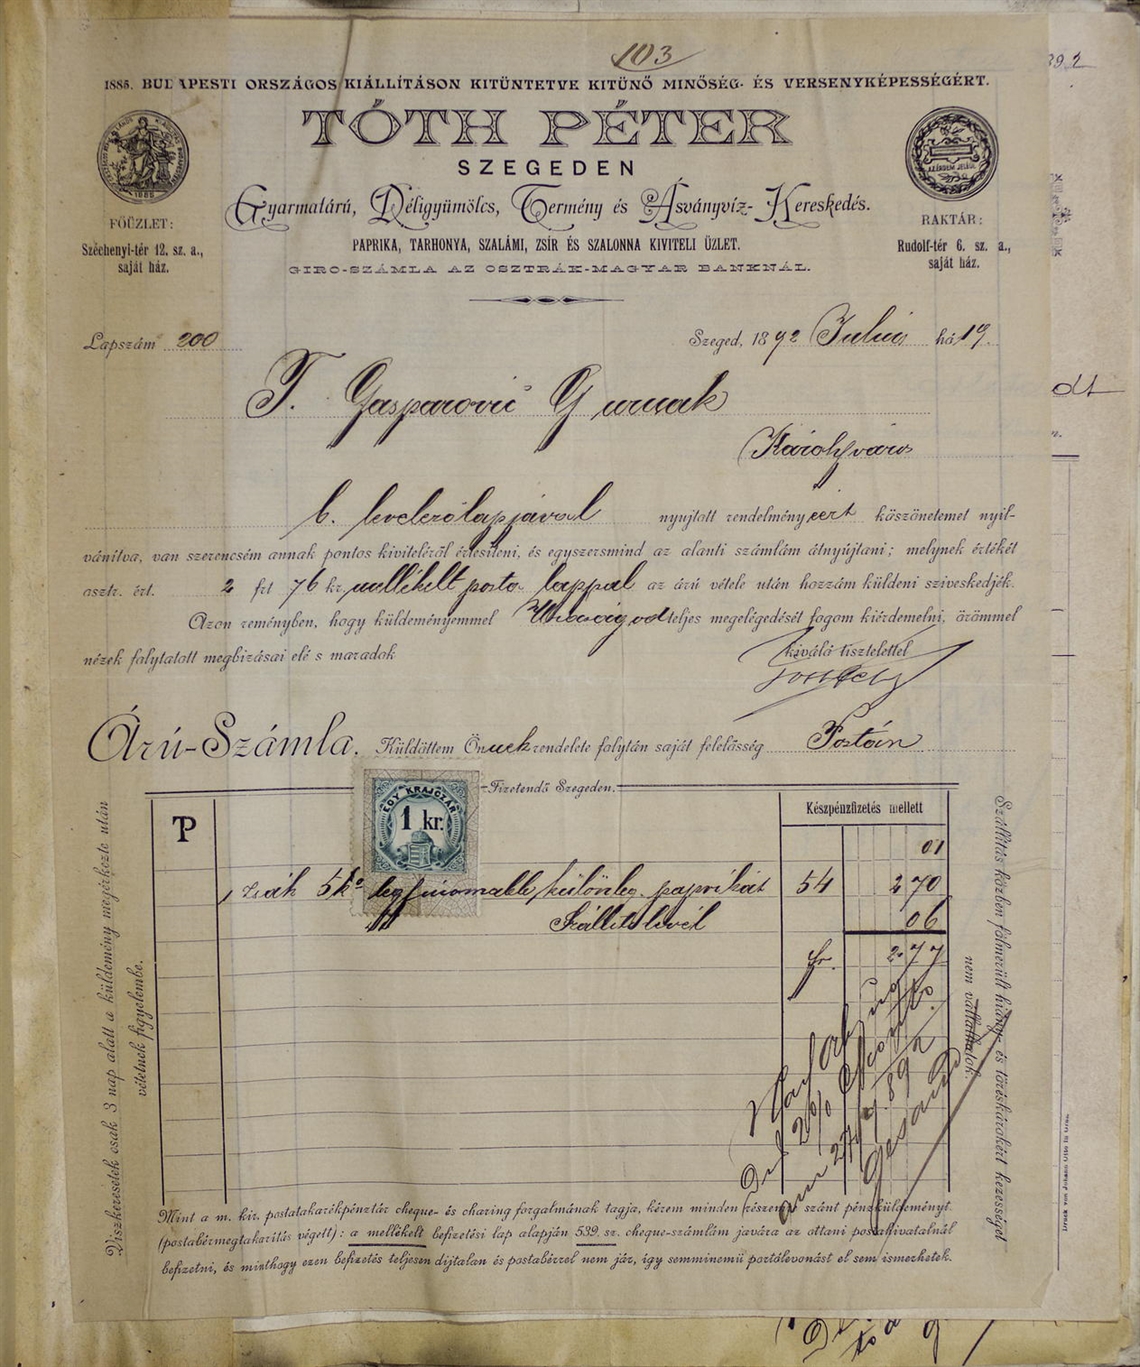 103
1885. BUDAPESTI ORSZÁGOS KIÁLLÍTÁSON KITÜNTETVE KITÜNŐ MINŐSÉG- ÉS VERSENYKÉPESSÉGÉRT.
TÓTH PÉTER
SZEGEDEN
Gyarmatárú, Déligyümölcs, Termény és Ásványvíz-Kereskedés.
PAPRIKA, TARHONYA, SZALÁMI, ZSÍR ÉS SZALONNA KIVITELI ÜZLET.
GIRO-SZÁMLA AZ OSZTRÁK-MAGYAR BANKNÁL.
FŐÜZLET:
Széchenyi-tér 12. sz. a.,
saját ház.
RAKTÁR:
Rudolf-tér 6. sz. a.,
saját ház.
Lapszám 200
Szeged, 1892 Julius hó 19.
T. Gasparović G urnak
Károlyváros
b. levelezőlapjával nyujtott rendelményeért köszönetemet nyil-
vánítva, van szerencsém annak pontos kiviteléről értesíteni, és egyszersmind az alanti számlám átnyújtani; melynek értékét
osztr. ért. 2 frt 76 kr mellékelt posta lappal az árú vétele után hozzám küldeni sziveskedjék.
Azon reményben, hogy küldeményemmel teljes megelégedését fogom kiérdemelni, örömmel
nézek folytatott megbizásai elé s maradok
kiváló tisztelettel
Árú-Számla. Küldöttem Önnek rendelete folytán saját felelősség Postán
Fizetendő Szegeden.
TP
EGY KRAJCZÁR
1 kr.
Készpénzfizetés mellett
01
1 zsák 5 ko legfinomabb különleg. paprikát 54 2 70
Szállitólevél 06
fr. 2.77
Viszkeresetek csak 3 nap alatt a küldemény megérkezte után
vétetnek figyelembe.
Szállítás közben fölmerült hiány- és töréskárokért kezességet
nem vállalhatok.
Mint a m. kir. postatakarékpénztár cheque- és clearing forgalmának tagja, kérem minden részemre szánt pénzküldeményt
(postabérmegtakarítás végett): a mellékelt befizetési lap alapján 539. sz. cheque-számlám javára az ottani postahivatalnál
befizetni, és minthogy ezen befizetés teljesen díjtalan és postabérrel nem jár, így semminemű portólevonást el sem ismerhetek.